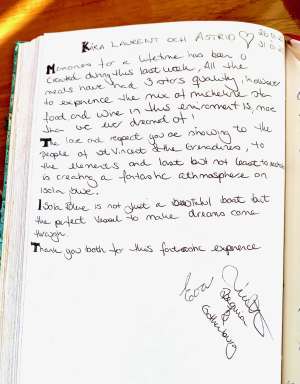 KIKA LAURENT OCH ASTRID ♡
Memories for a lifetime has been
created during this last week, All the
meals have had 3 stars quality, however
to experience the mix of michelin star
food and wine in this enviroment is, more
than we ever dreamed of!
The love and respect you are showing to the
people of St Vincent & the Grenadines, to
the elements and last but not least to
is creating a fantastic athmosphere on
Isola blue.
Isola Blue is not just a beautiful boat but
the perfect vessel to make dreams come
through.
Thank you both for this fantastic experience
Eva
Gothenburg